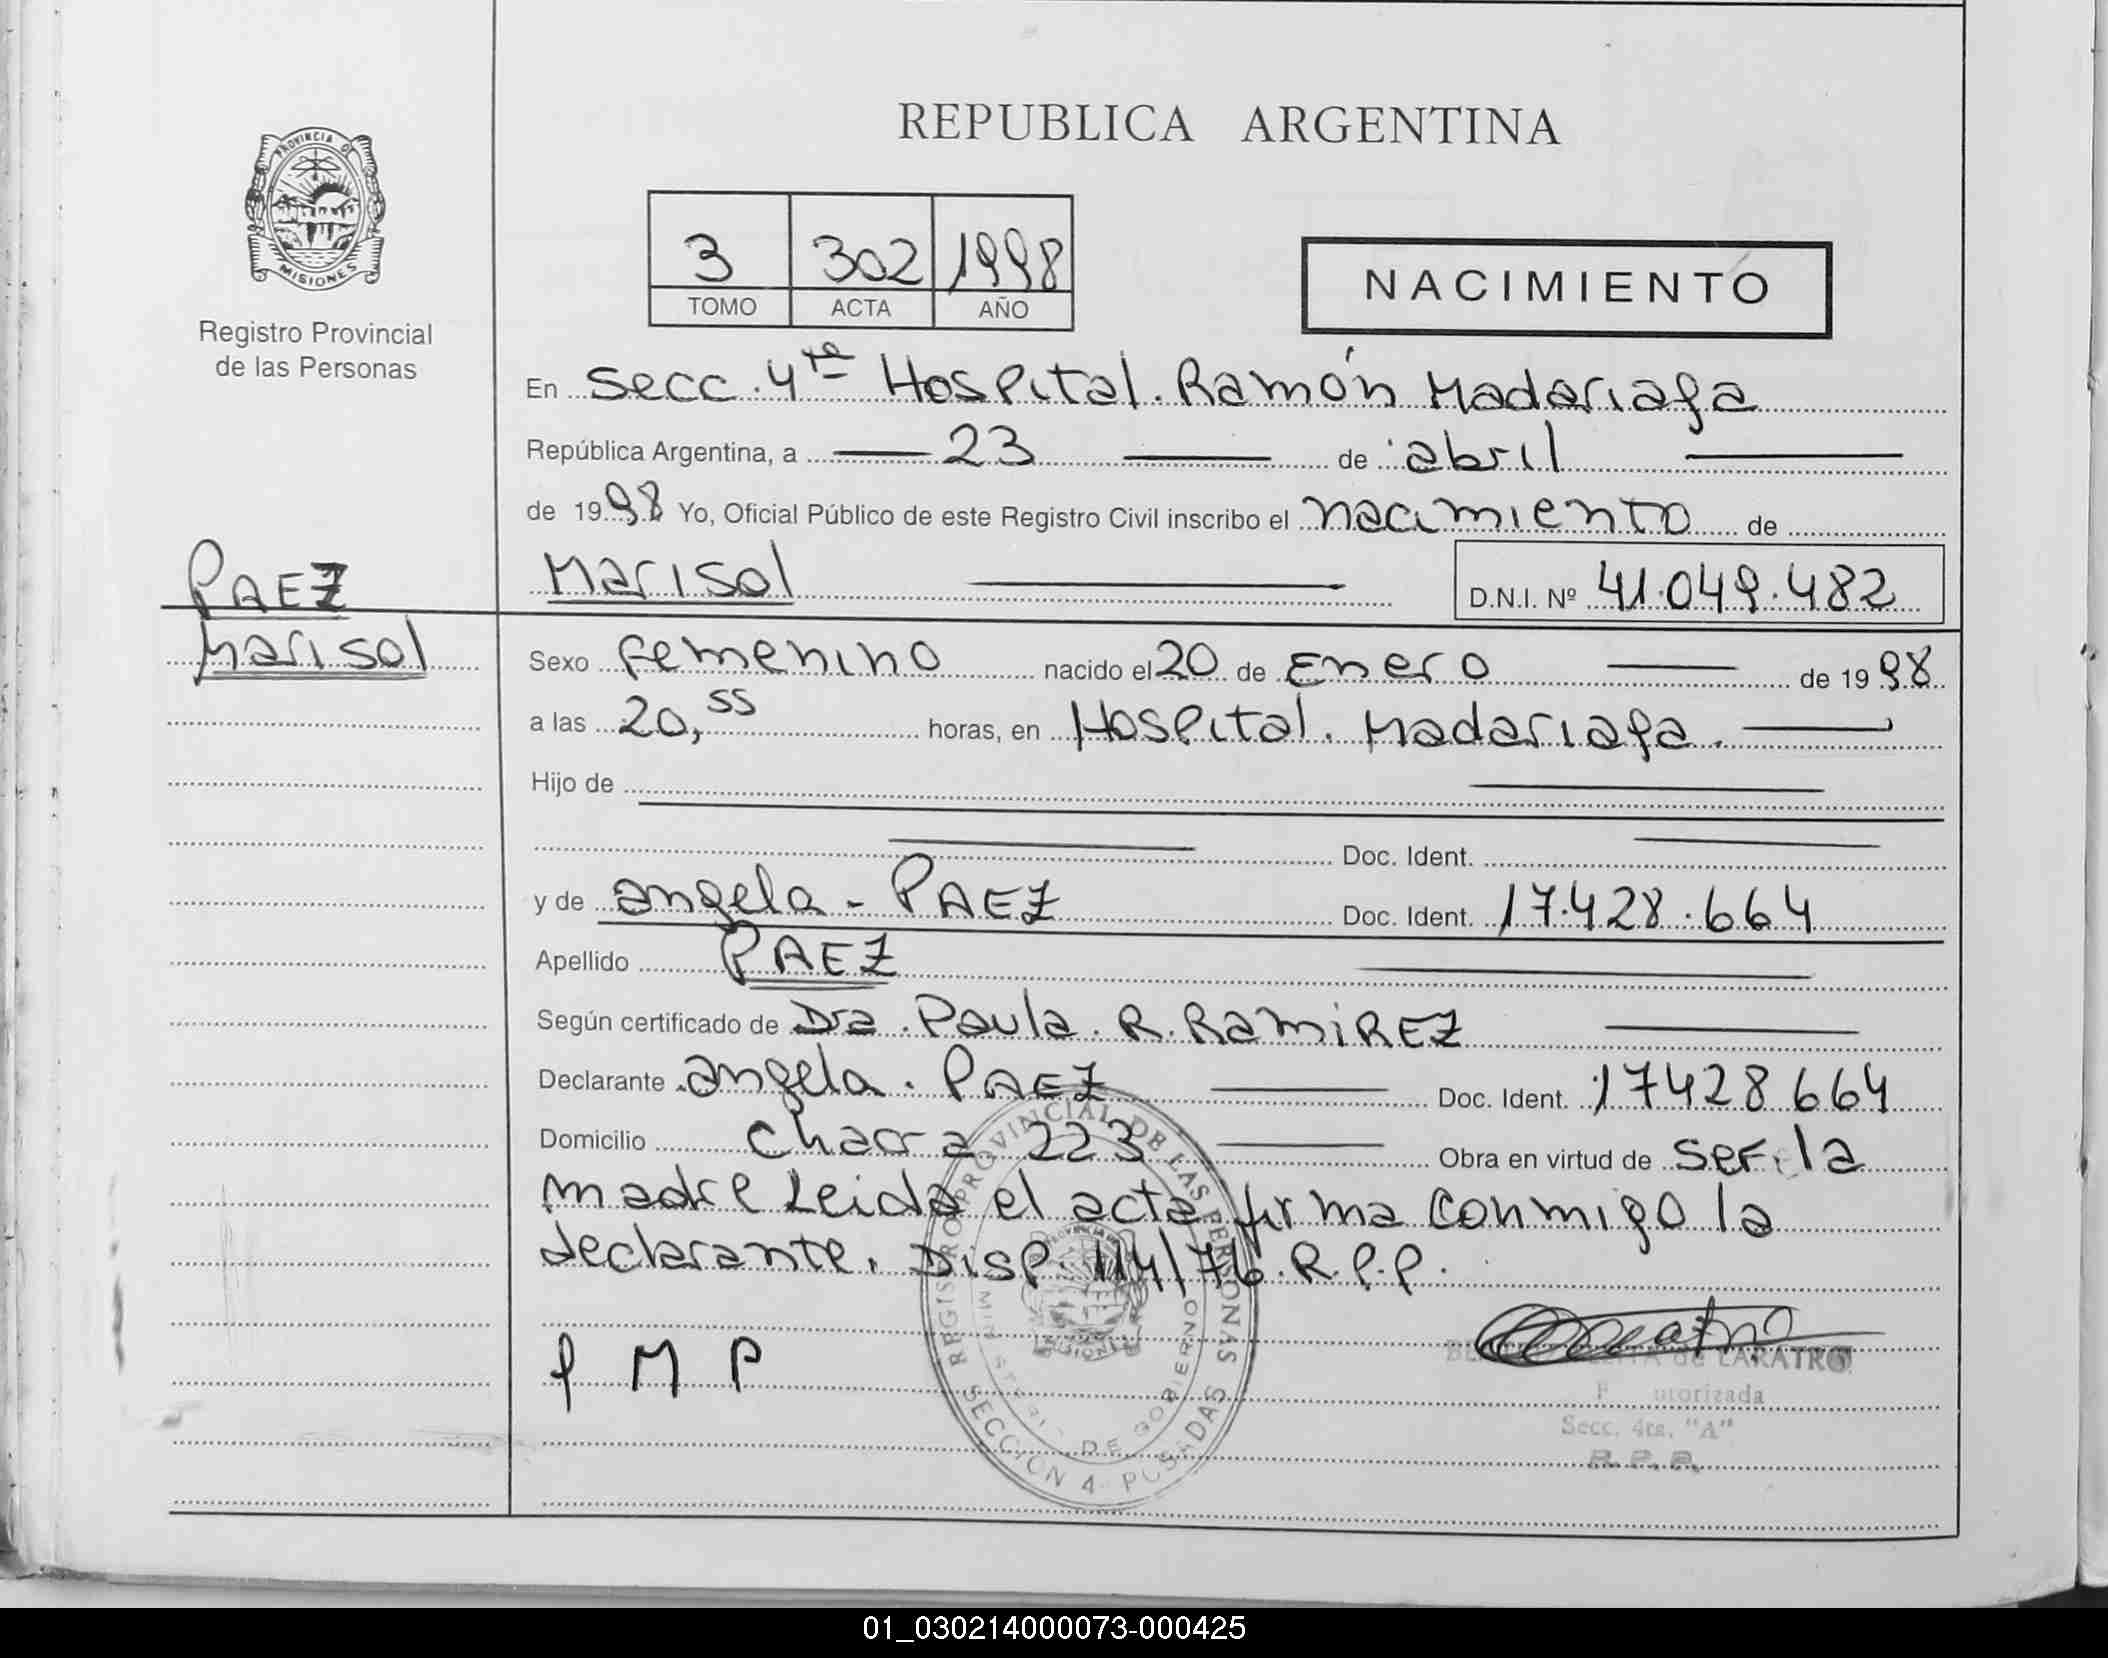 REPUBLICA ARGENTINA
PROVINCIA DE
MISIONES
Registro Provincial
de las Personas
3 302 1998
TOMO ACTA AÑO
NACIMIENTO
En Secc. 4ta Hospital. Ramón Madariaga
República Argentina, a 23 de abril
de 1998 Yo, Oficial Público de este Registro Civil inscribo el nacimiento de
Marisol D.N.I. Nº 41.049.482
PAEZ
Marisol
Sexo femenino nacido el 20 de Enero de 1998
a las 20,55 horas, en Hospital. Madariaga.
Hijo de
Doc. Ident.
y de angela - PAEZ Doc. Ident. 17.428.664
Apellido PAEZ
Según certificado de Dra. Paula. R. RAMIREZ
Declarante angela. PAEZ Doc. Ident. 17428664
Domicilio chacra 223 Obra en virtud de ser la
madre Leida el acta firma conmigo la
declarante. Disp. 114/76.R.P.P.
P M P
REGISTRO PROVINCIAL DE LAS PERSONAS
MINISTERIO DE GOBIERNO
SECCION 4 - POSADAS
MISIONES
de LARATRO
utorizada
Secc. 4ta. "A"
01_030214000073-000425